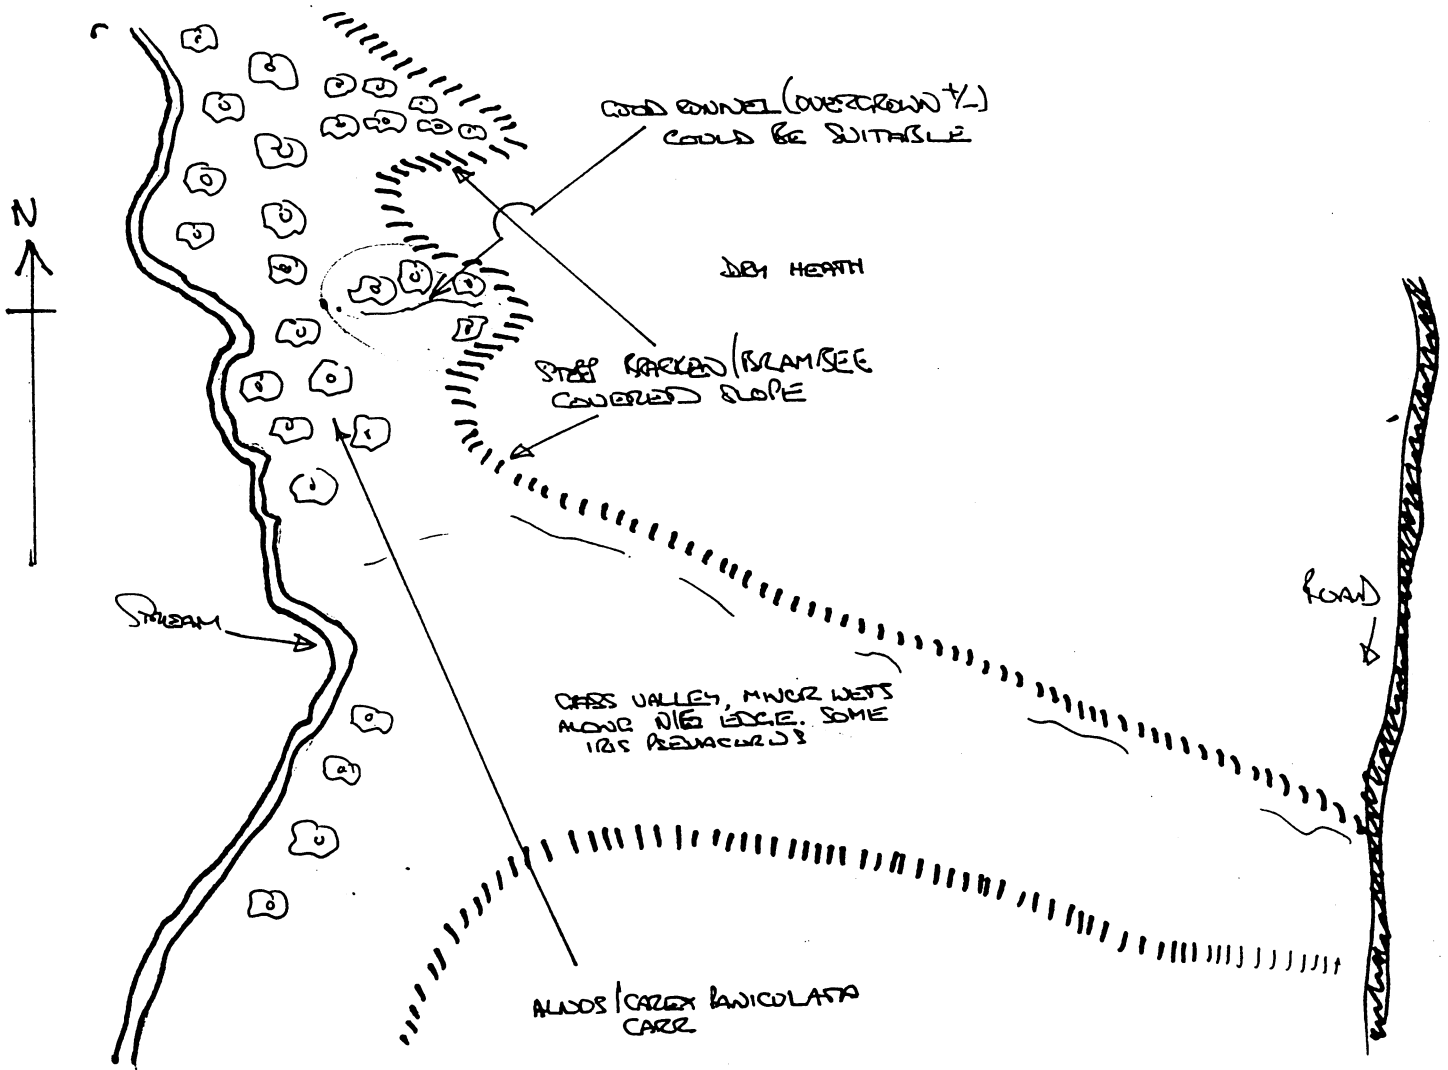 GOOD RUNNEL (OVERGROWN +/-)
COULD BE SUITABLE
N
DRY HEATH
STEEP BRACKEN/BRAMBLE
COVERED SLOPE
ROAD
STREAM
GRASS VALLEY, MINOR WETS
ALONG N/E EDGE. SOME
IRIS PSEUDACORUS
ALNUS/CAREX PANICULATA
CARR